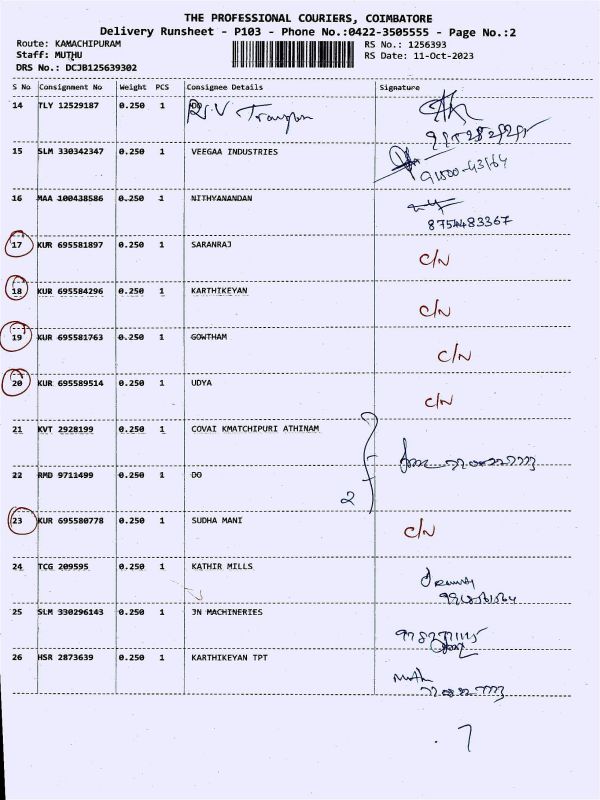 THE PROFESSIONAL COURIERS, COIMBATORE
Delivery Runsheet - P103 - Phone No.:0422-3505555 - Page No.:2
Route: KAMACHIPURAM RS No.: 1256393
Staff: MUTHU RS Date: 11-Oct-2023
DRS No.: DCJB125639302
S No Consignment No Weight PCS Consignee Details Signature
14 TLY 12529187 0.250 1
15 SLM 330342347 0.250 1 VEEGAA INDUSTRIES
16 MAA 100438586 0.250 1 NITHYANANDAN
8754483367
17 KUR 695581897 0.250 1 SARANRAJ C/N
18 KUR 695584296 0.250 1 KARTHIKEYAN C/N
19 KUR 695581763 0.250 1 GOWTHAM C/N
20 KUR 695589514 0.250 1 UDYA C/N
21 KVT 2928199 0.250 1 COVAI KMATCHIPURI ATHINAM
22 RMD 9711499 0.250 1 DO
2
23 KUR 695580778 0.250 1 SUDHA MANI C/N
24 TCG 209595 0.250 1 KATHIR MILLS
25 SLM 330296143 0.250 1 JN MACHINERIES
26 HSR 2873639 0.250 1 KARTHIKEYAN TPT
7